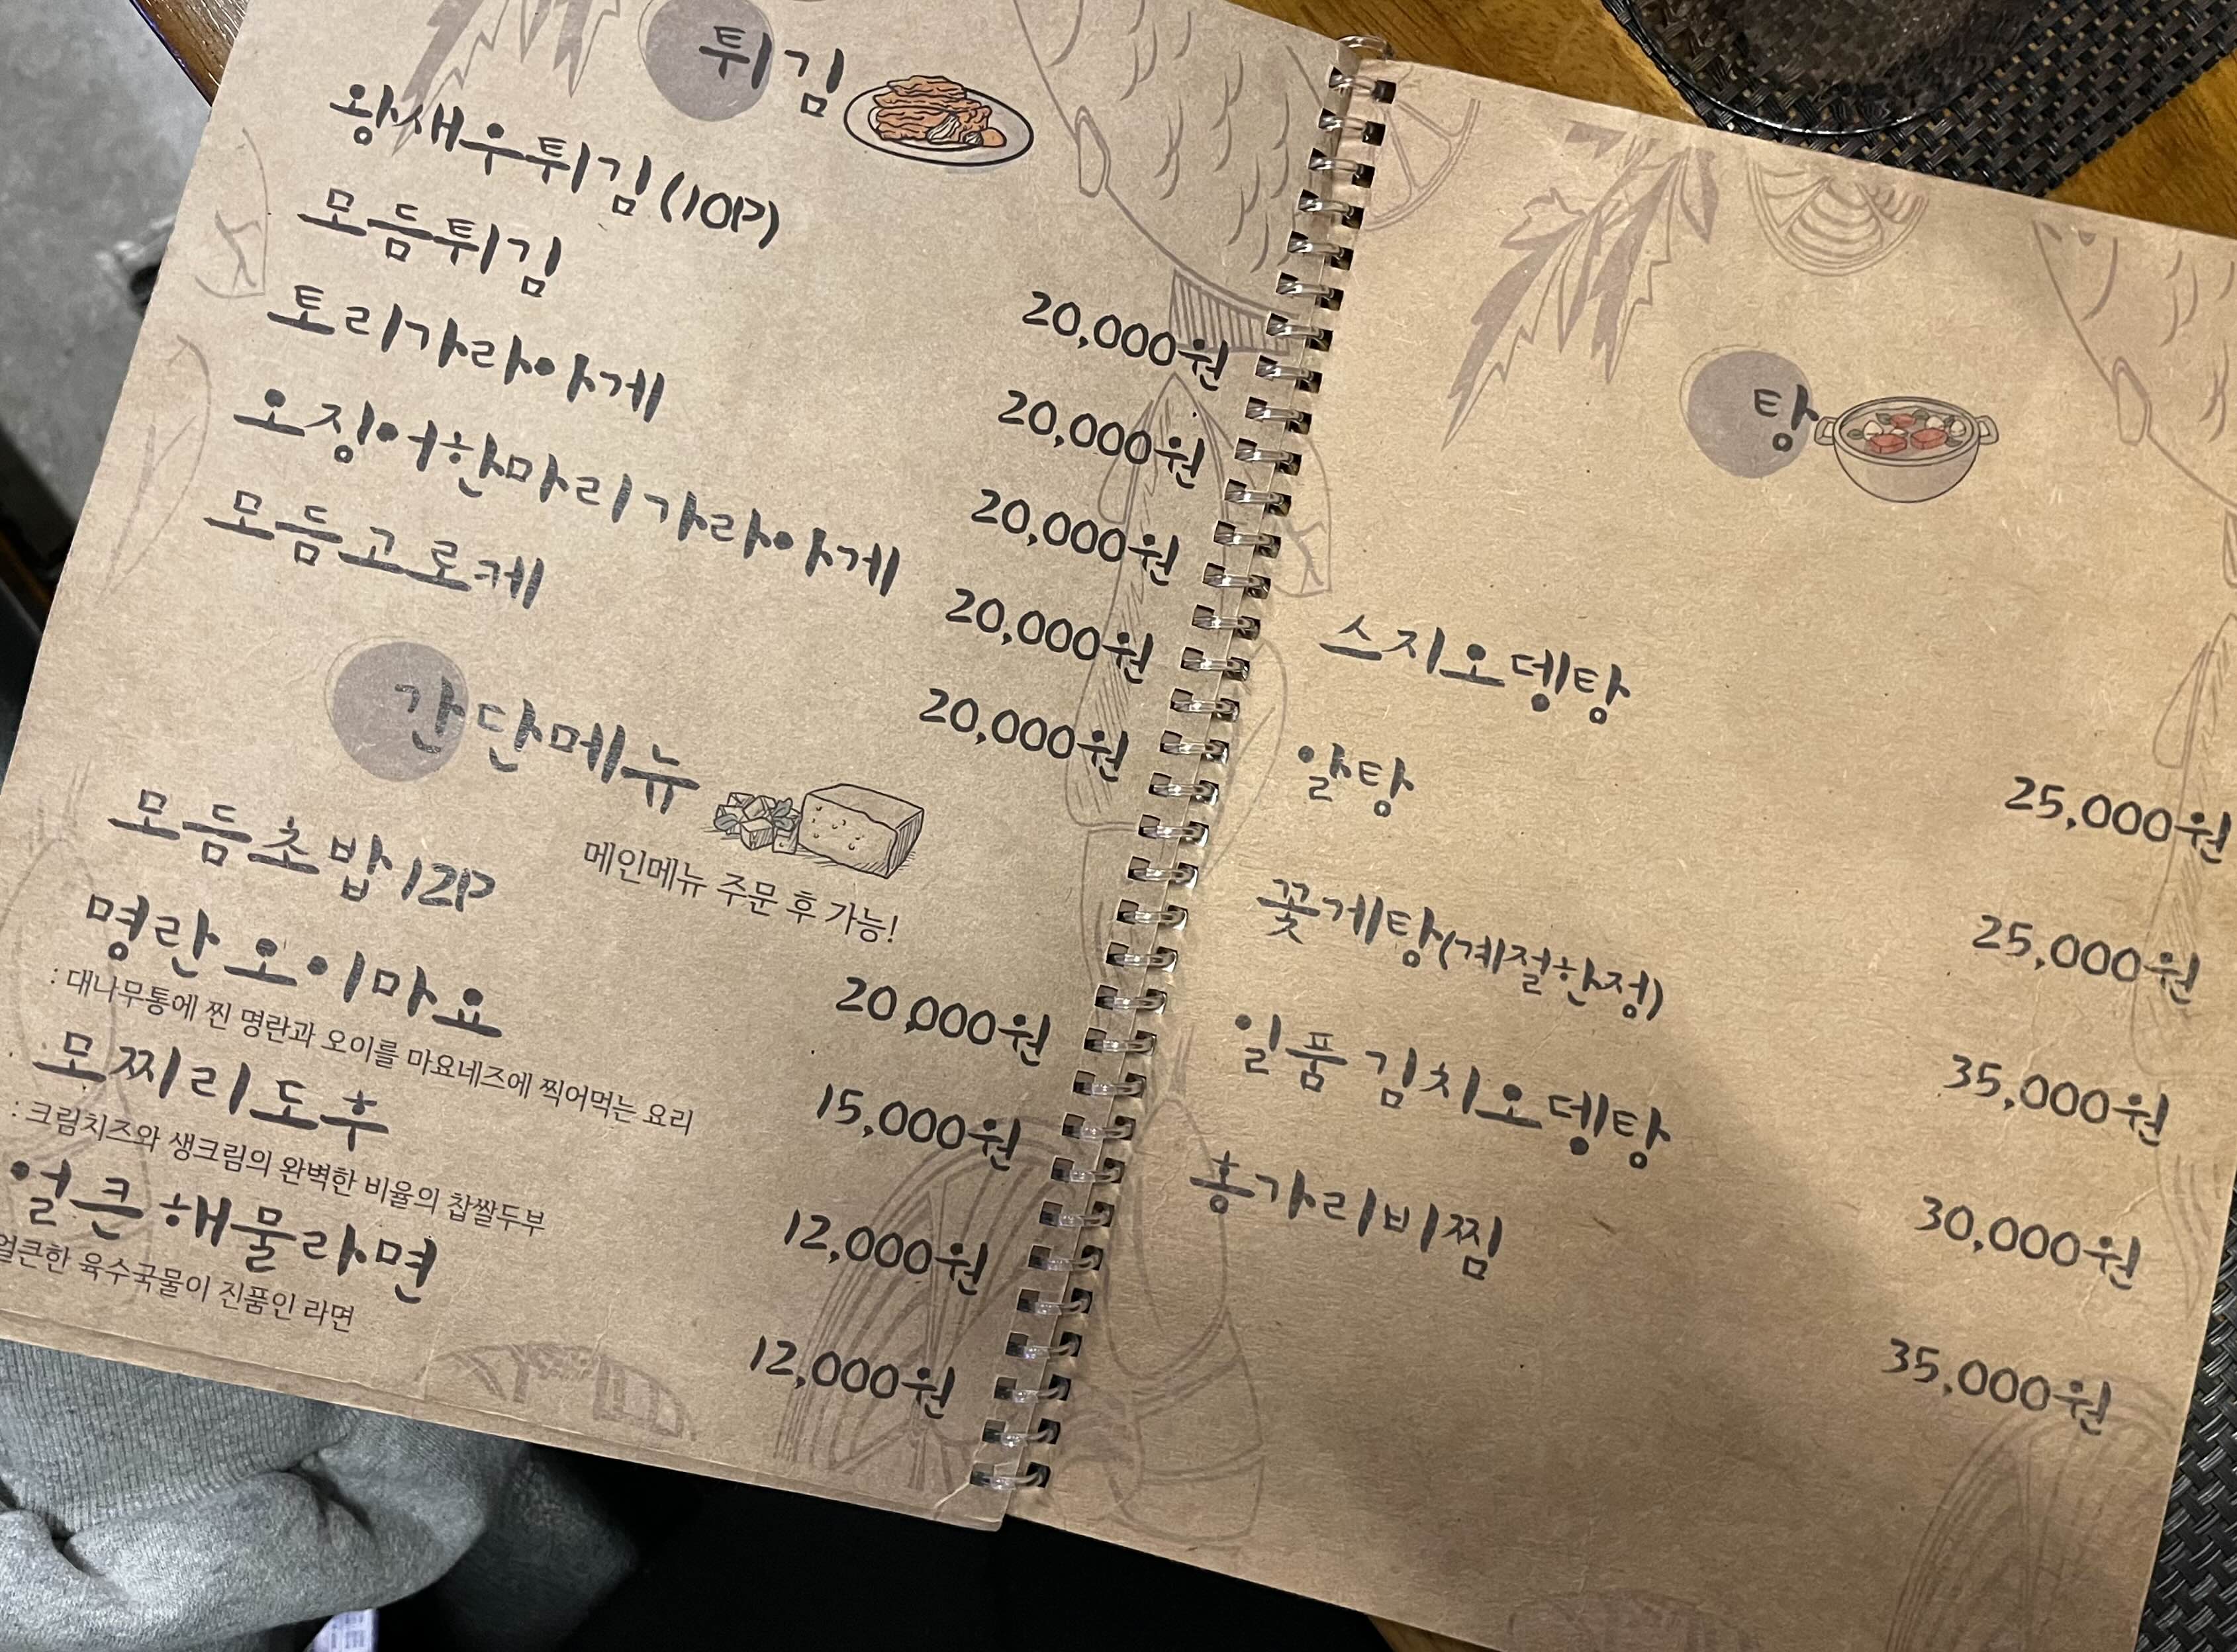 튀김
왕새우튀김(10P) 20,000원
모듬튀김 20,000원
토리가라아게 20,000원
오징어한마리 가라아게 20,000원
모듬고로케 20,000원
간단메뉴
메인메뉴 주문 후 가능!
모듬초밥12P 20,000원
명란 오이마요 15,000원
: 대나무통에 찐 명란과 오이를 마요네즈에 찍어먹는 요리
모찌리도후 12,000원
: 크림치즈와 생크림의 완벽한 비율의 찹쌀두부
얼큰 해물라면 12,000원
얼큰한 육수국물이 진품인 라면
탕
스지오뎅탕 25,000원
알탕 25,000원
꽃게탕(계절한정) 35,000원
일품 김치오뎅탕 30,000원
홍가리비찜 35,000원